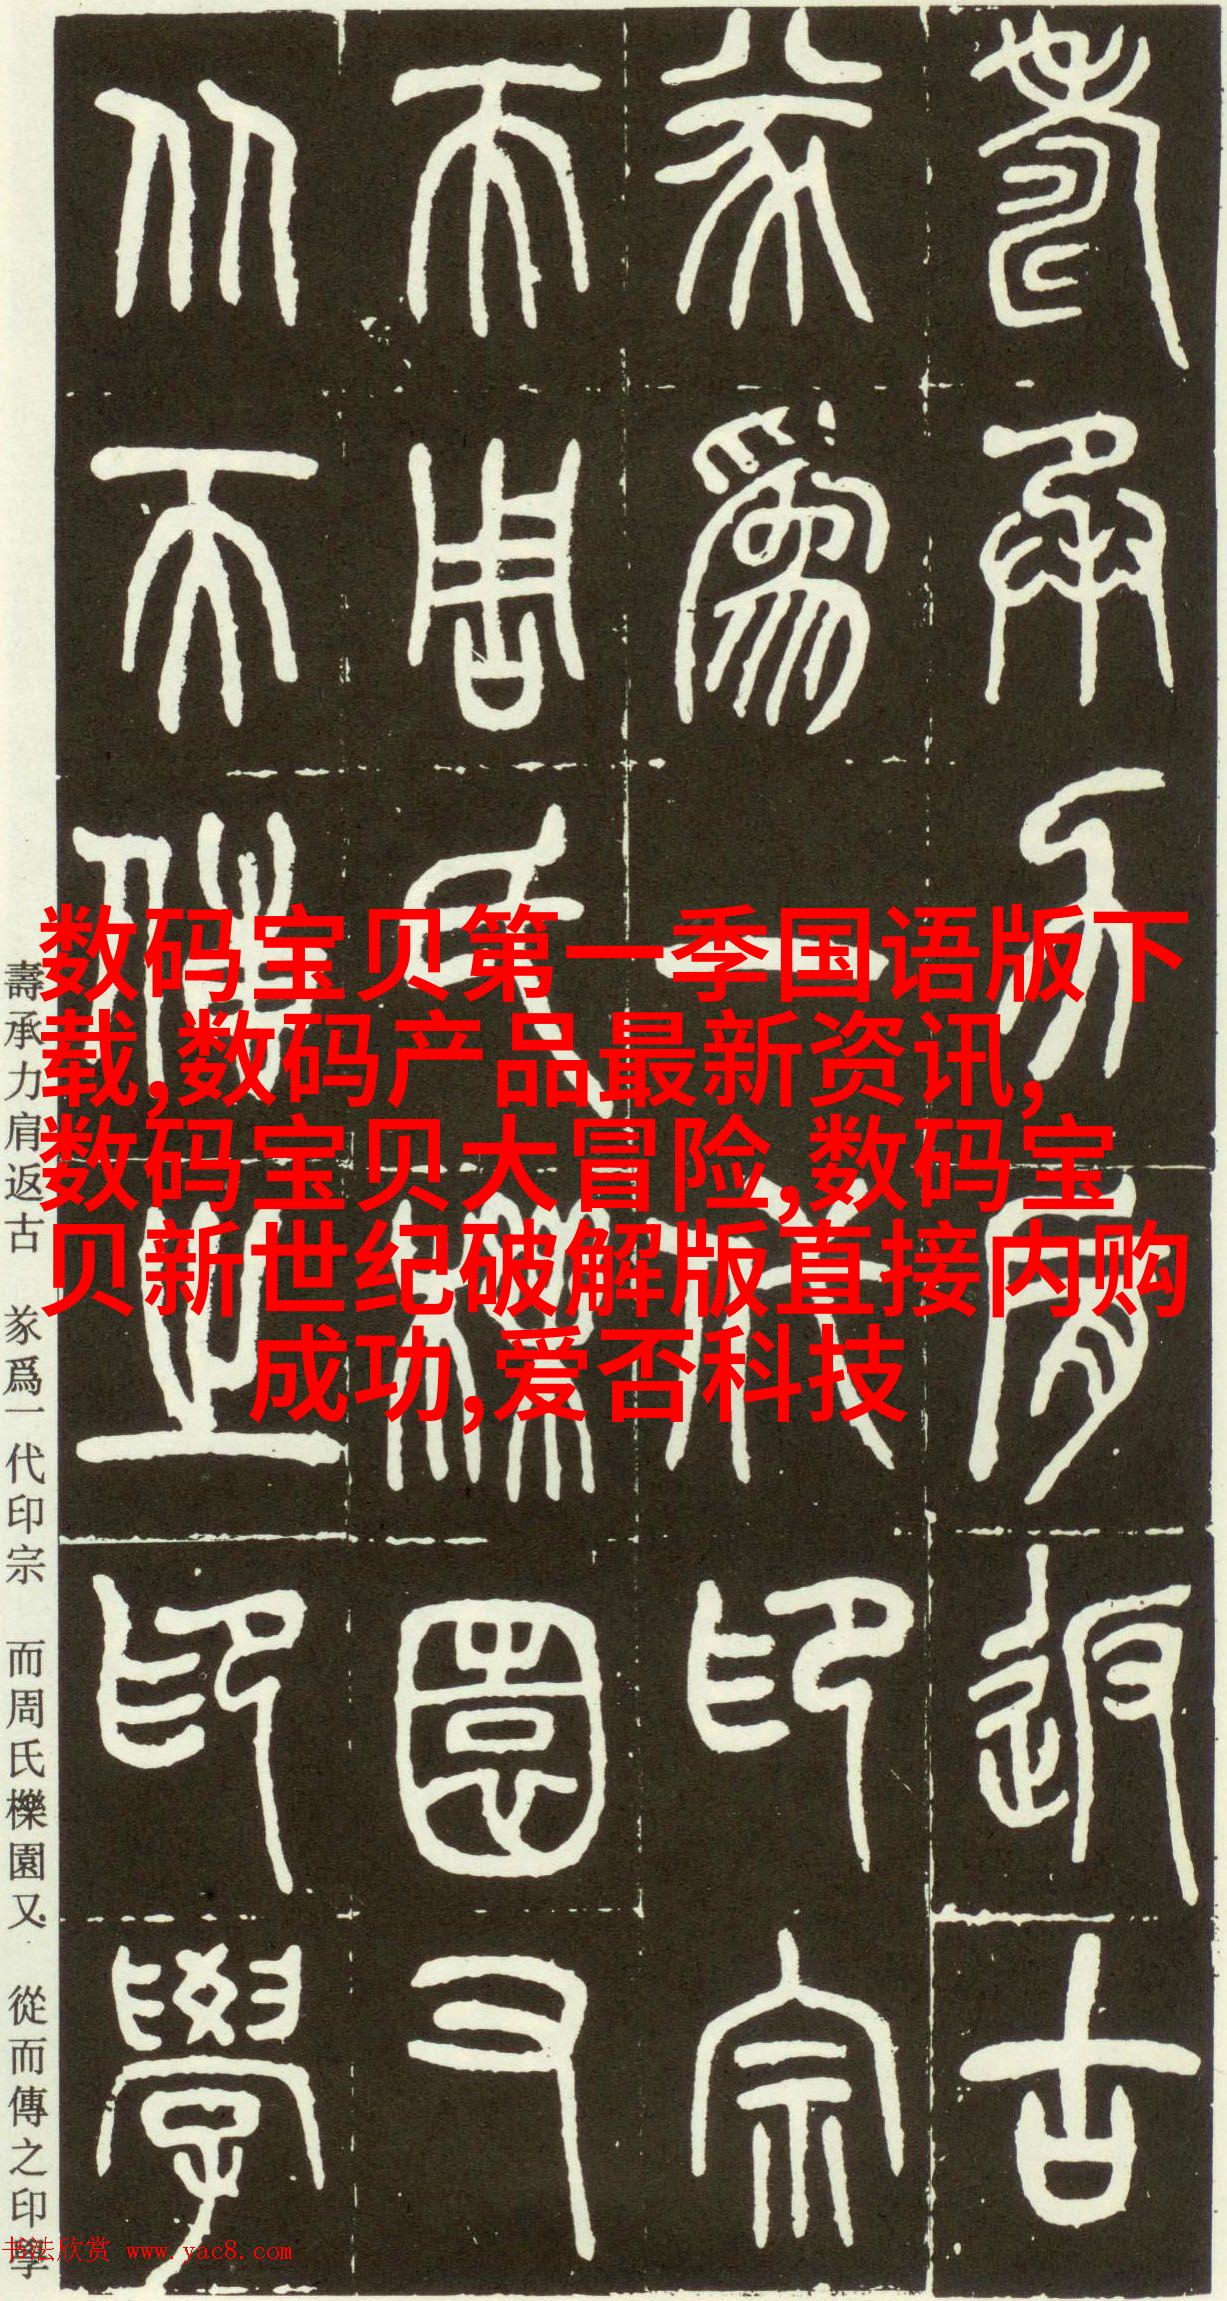 壽承力肩返古
篆爲一代印宗
而周氏櫟園又
從而傳之印學
數码宝贝第一季国语版下
载,数码产品最新资讯,
数码宝贝大冒险,数码宝
贝新世纪破解版直接内购
成功,爱否科技
书法欣赏 www.yac8.com